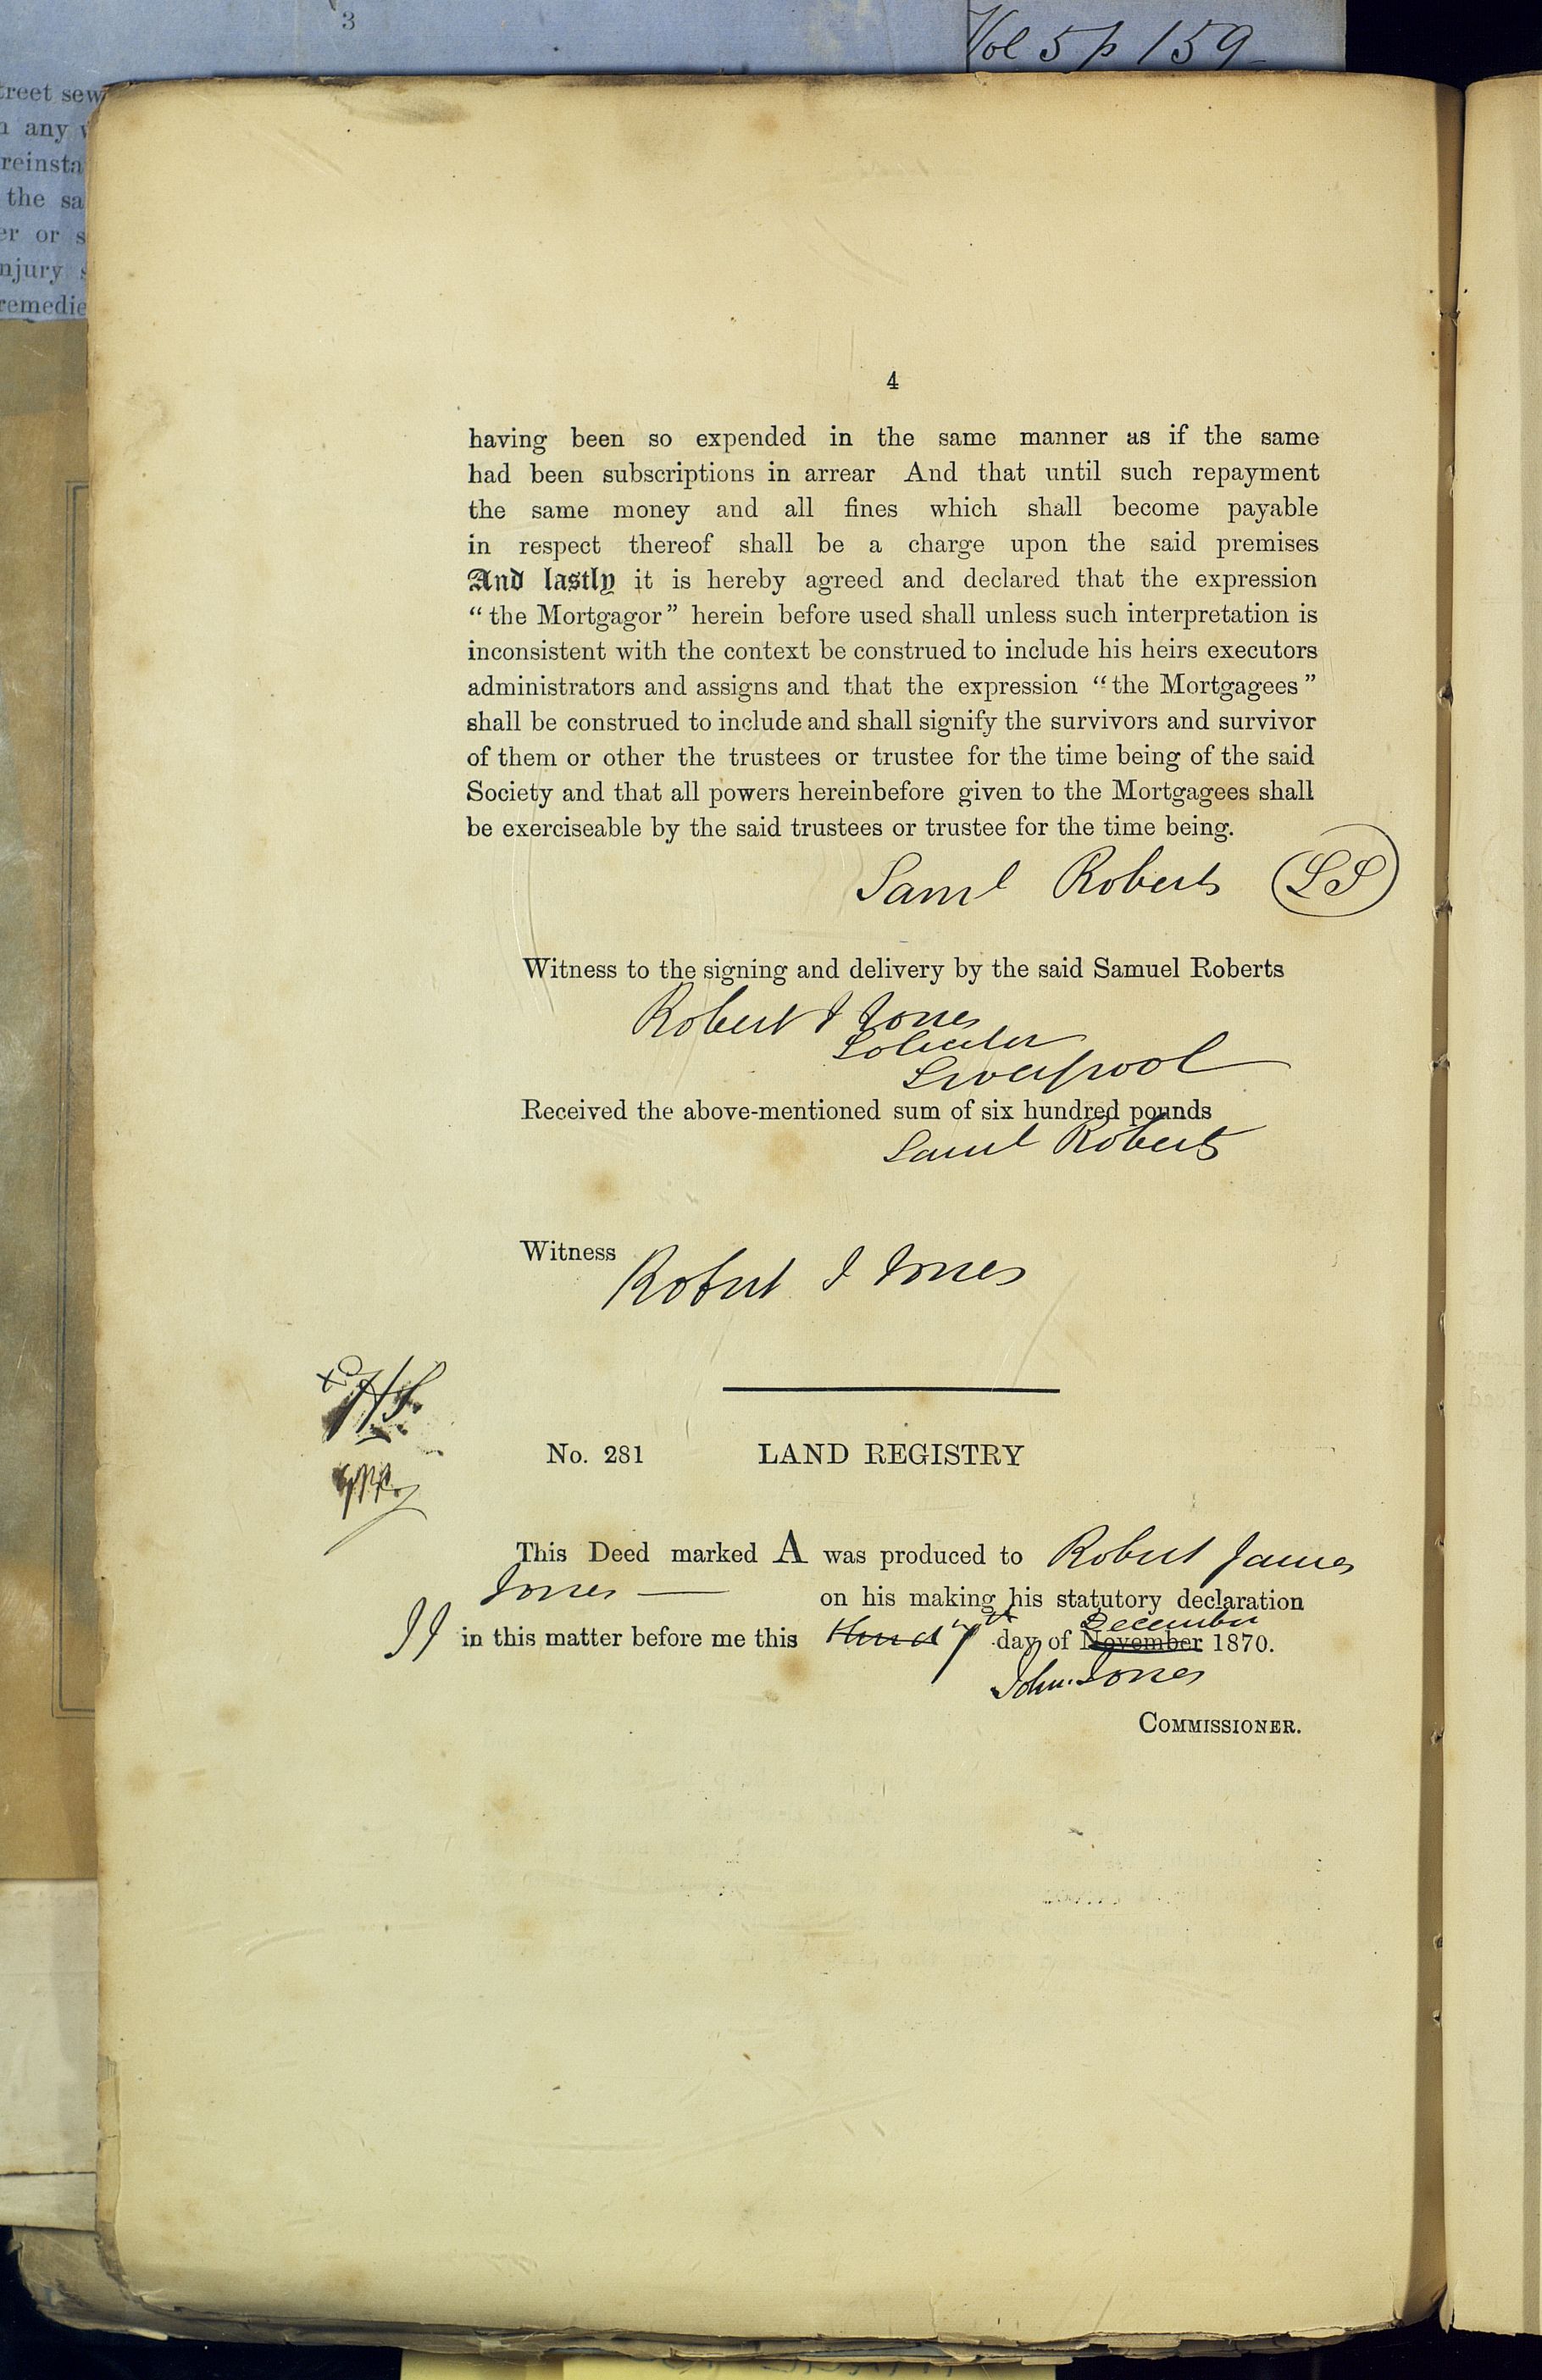 3
Vol 5 p 159
treet sew
any
reinsta
the sa
er or s
njury s
remedie
4
having been so expended in the same manner as if the same
had been subscriptions in arrear And that until such repayment
the same money and all fines which shall become payable
in respect thereof shall be a charge upon the said premises
And lastly it is hereby agreed and declared that the expression
“the Mortgagor” herein before used shall unless such interpretation is
inconsistent with the context be construed to include his heirs executors
administrators and assigns and that the expression “the Mortgagees”
shall be construed to include and shall signify the survivors and survivor
of them or other the trustees or trustee for the time being of the said
Society and that all powers hereinbefore given to the Mortgagees shall
be exerciseable by the said trustees or trustee for the time being.
Saml Roberts LS
Witness to the signing and delivery by the said Samuel Roberts
Robert J Jones
Solicitor
Liverpool
Received the above-mentioned sum of six hundred pounds
Saml Roberts
Witness
Robert J Jones
No. 281 LAND REGISTRY
This Deed marked A was produced to Robert James
Jones on his making his statutory declaration
JJ in this matter before me this third 7th day of November December 1870.
John Jones
COMMISSIONER.